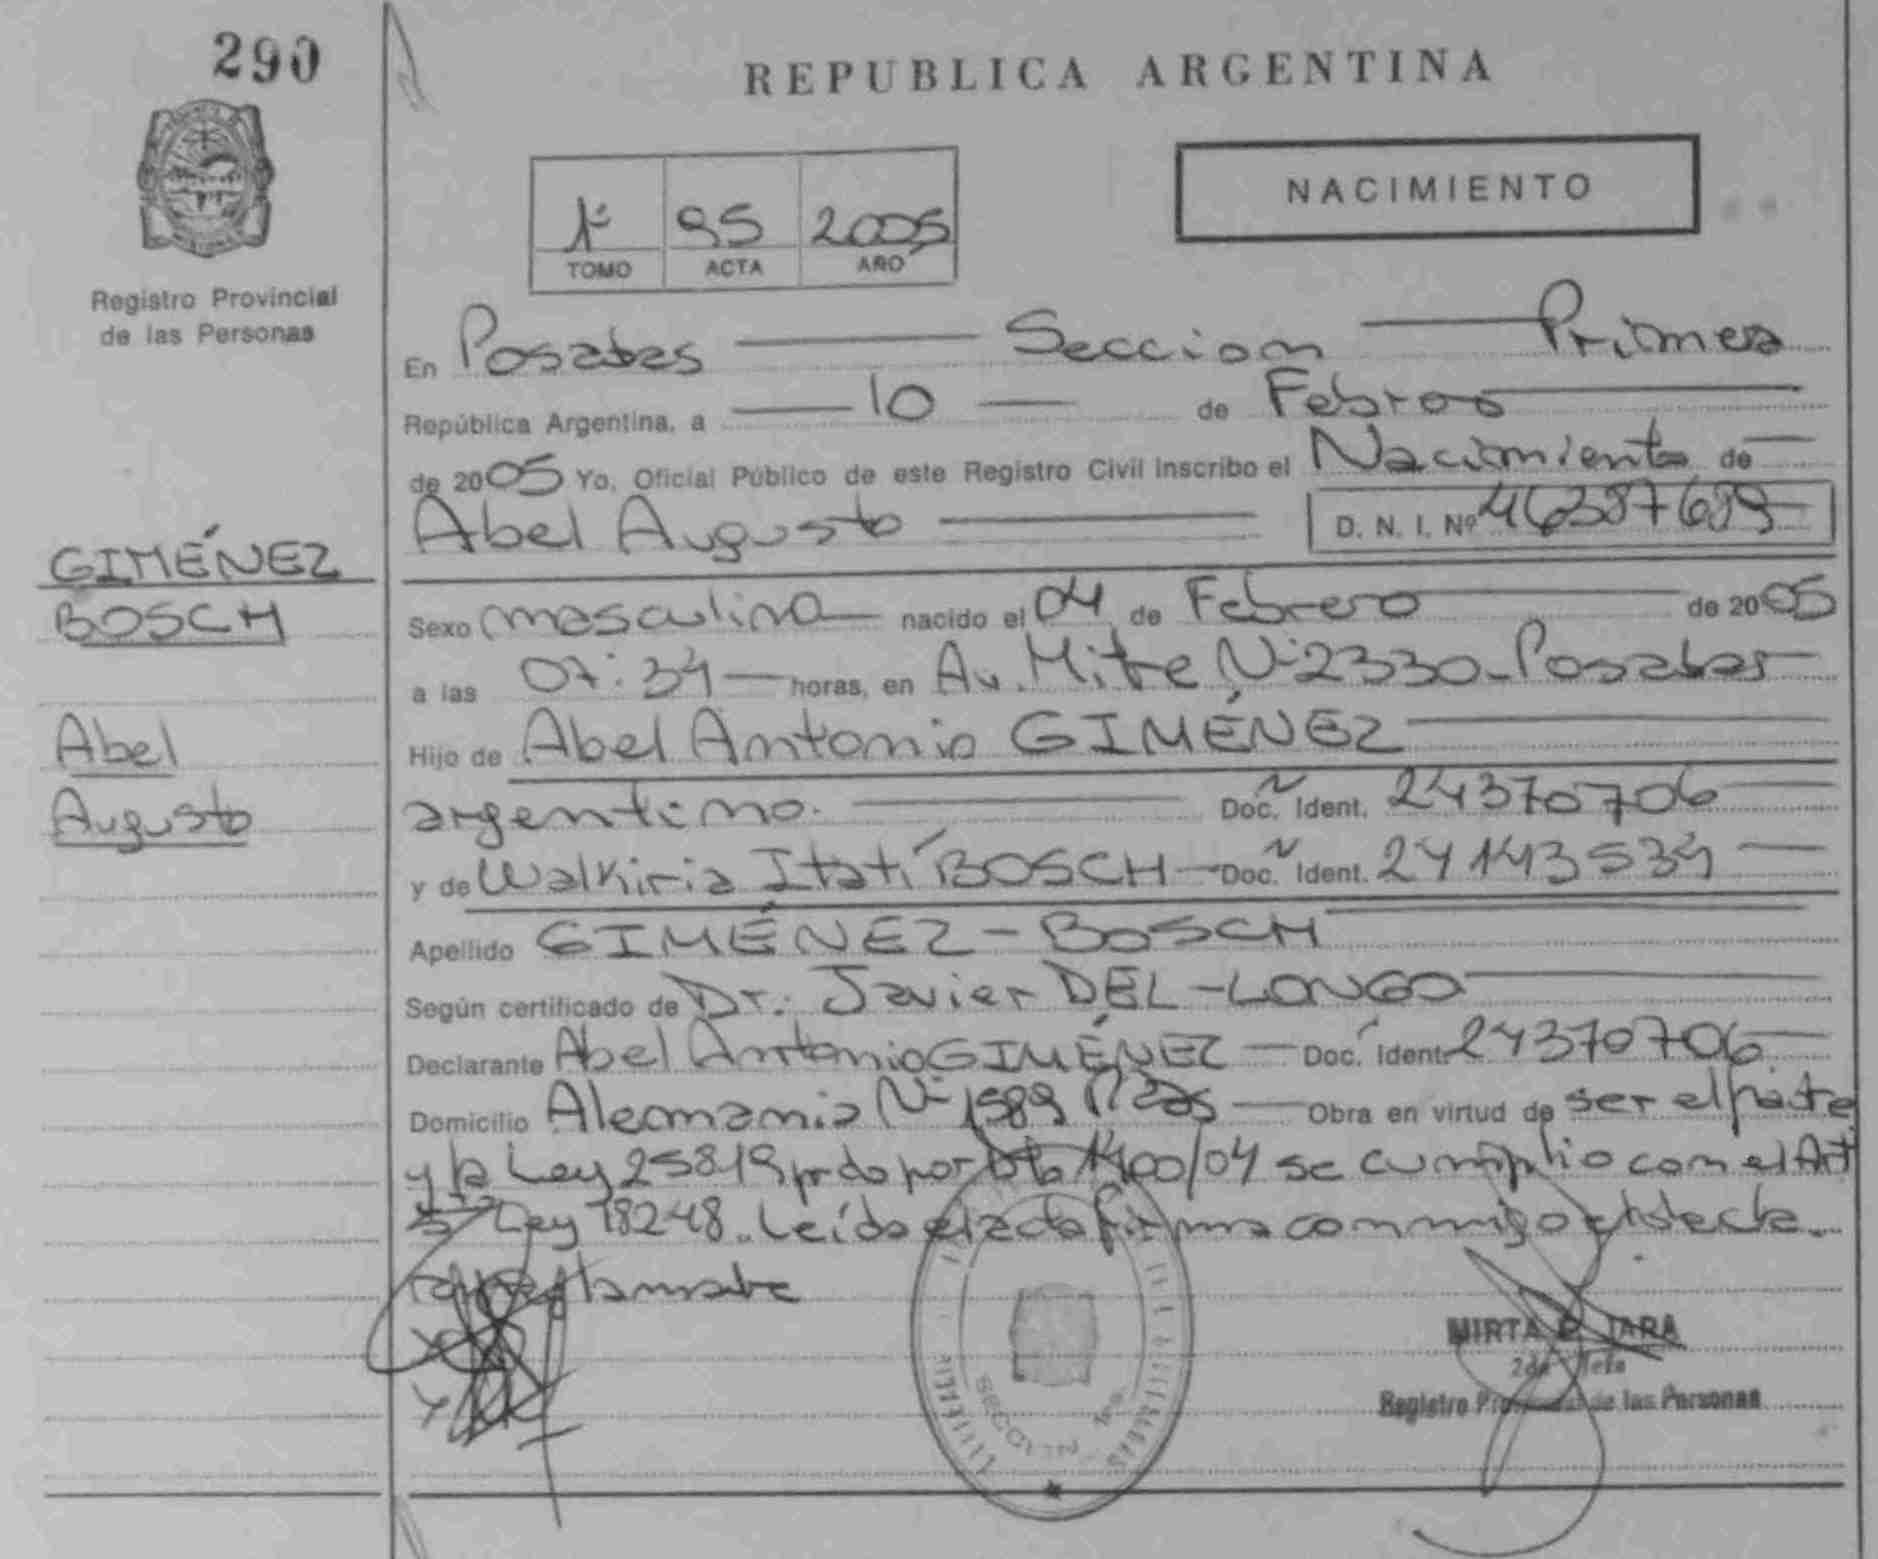 290
REPUBLICA ARGENTINA
NACIMIENTO
1º 95 2005
TOMO ACTA AÑO
Registro Provincial
de las Personas
En Posadas Seccion Primera
República Argentina, a 10 de Febrero
de 2005 Yo, Oficial Público de este Registro Civil inscribo el Nacimiento de
Abel Augusto D. N. I. Nº 46387689
GIMÉNEZ
BOSCH
Abel
Augusto
Sexo masculino nacido el 04 de Febrero de 2005
a las 07:34 horas, en Av. Mitre Nº 2330 - Posadas
Hijo de Abel Antonio GIMÉNEZ
argentino. Doc. Ident. 24370706
y de Walkiria Itatí BOSCH Doc. Ident. 24143534
Apellido GIMÉNEZ - BOSCH
Según certificado de Dr. Javier DEL-LONGO
Declarante Abel Antonio GIMÉNEZ Doc. Ident. 24370706
Domicilio Alemania Nº 1589 Obra en virtud de ser el padre
y la Ley 25819 por 1400/04 se cumplio con el Art
Ley 18248. Leída el acta firma conmigo
MIRTA JARA
2da Jefa
Registro Provincial de las Personas
SECCION 1ra